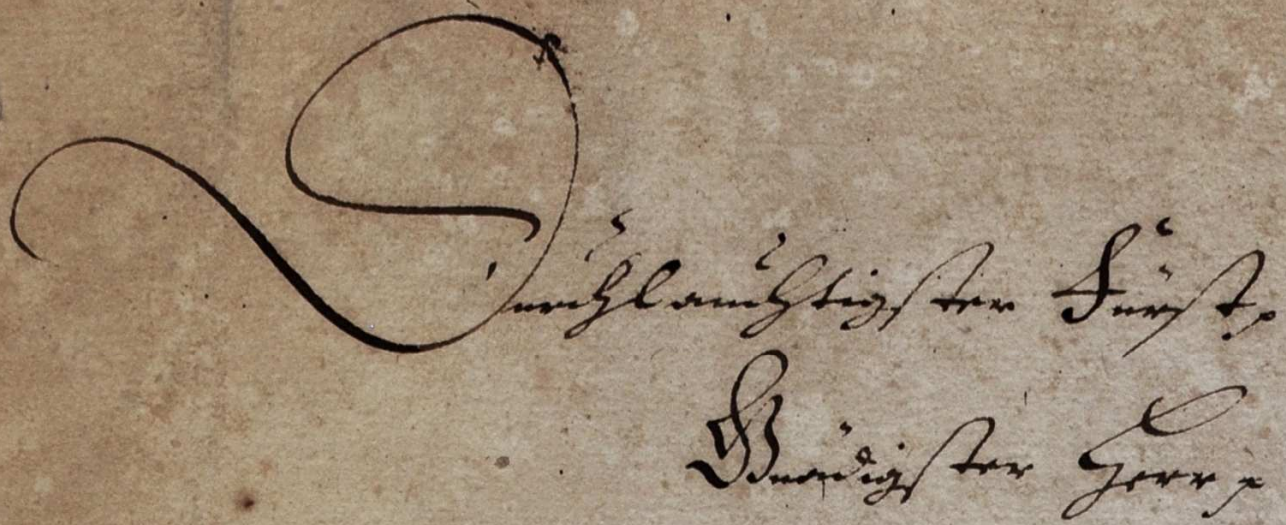 Durchlauchtigster Fürst,
Gnädigster Herr,